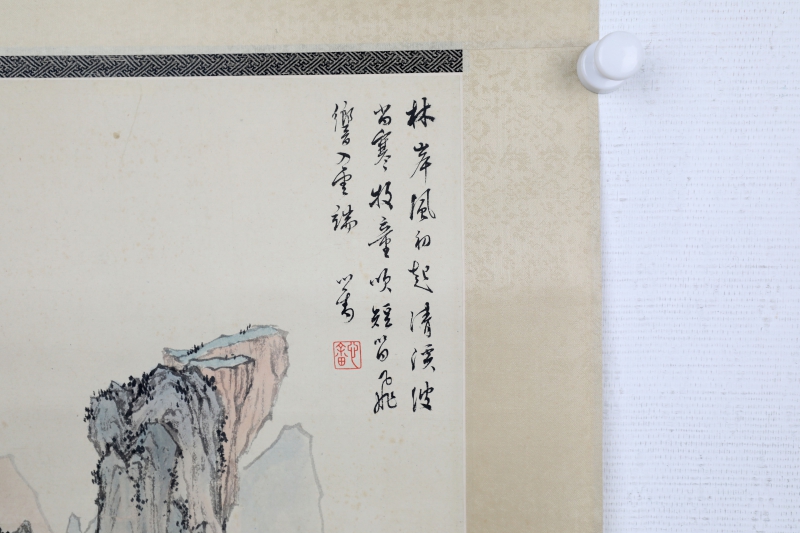 林岸風初起清溪波
尚寒牧童吹短笛飛
響入雲端　心畬
心畬